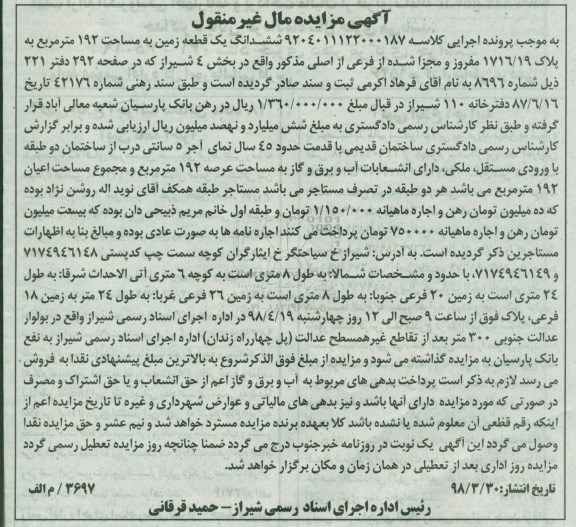 آگهی مزایده مال غیر منقول
به موجب پرونده اجرایی کلاسه ۹۲۰۴۰۱۱۱۲۲۰۰۰۱۸۷ ششدانگ یک قطعه زمین به مساحت ۱۹۲ مترمربع به
پلاک ۱۷۱۶/۱۹ مفروز و مجزا شده از فرعی از اصلی مذکور واقع در بخش ۴ شیراز که در صفحه ۲۹۲ دفتر ۲۲۱
ذیل شماره ۸۶۹۶ به نام آقای فرهاد اکرمی ثبت و سند صادر گردیده است و طبق سند رهنی شماره ۴۲۱۷۶ تاریخ
۸۷/۶/۱۶ دفترخانه ۱۱۰ شیراز در قبال مبلغ ۱/۳۶۰/۰۰۰/۰۰۰ ریال در رهن بانک پارسیان شعبه معالی آباد قرار
گرفته و طبق نظر کارشناس رسمی دادگستری به مبلغ شش میلیارد و نهصد میلیون ریال ارزیابی شده و برابر گزارش
کارشناس رسمی دادگستری ساختمان قدیمی با قدمت حدود ۴۵ سال نمای آجر ۵ سانتی درب از ساختمان دو طبقه
با ورودی مستقل، ملکی، دارای انشعابات آب و برق و گاز به مساحت عرصه ۱۹۲ مترمربع و مجموع مساحت اعیان
۱۹۲ مترمربع می باشد هر دو طبقه در تصرف مستاجر می باشد مستاجر طبقه همکف آقای نوید اله روشن نژاد بوده
که ده میلیون تومان رهن و اجاره ماهیانه ۱/۱۵۰/۰۰۰ تومان و طبقه اول خانم مریم ذبیحی دان بوده که بیست میلیون
تومان رهن و اجاره ماهیانه ۷۵۰۰۰۰ تومان پرداخت می کنند اجاره نامه ها به صورت عادی بوده و مبالغ بنا به اظهارات
مستاجرین ذکر گردیده است. به آدرس: شیراز خ سیاحتگر خ ایثارگران کوچه سمت چپ کدپستی ۷۱۷۴۹۴۶۱۴۸
و ۷۱۷۴۹۴۶۱۴۹، با حدود و مشخصات شمالا: به طول ۸ متری است به کوچه ۶ متری آتی الاحداث شرقا: به طول
۲۴ متری است به زمین ۲۰ فرعی جنوبا: به طول ۸ متری است به زمین ۲۶ فرعی غربا: به طول ۲۴ متر به زمین ۱۸
فرعی، پلاک فوق از ساعت ۹ صبح الی ۱۲ روز چهارشنبه ۹۸/۴/۱۹ در اداره اجرای اسناد رسمی شیراز واقع در بولوار
عدالت جنوبی ۳۰۰ متر بعد از تقاطع غیرهمسطح عدالت (پل چهارراه زندان) اداره اجرای اسناد رسمی شیراز به نفع
بانک پارسیان به مزایده گذاشته می شود و مزایده از مبلغ فوق الذکر شروع به بالاترین مبلغ پیشنهادی نقدا به فروش
می رسد لازم به ذکر است پرداخت بدهی های مربوط به آب و برق و گاز اعم از حق انشعاب و یا حق اشتراک و مصرف
در صورتی که مورد مزایده دارای آنها باشد و نیز بدهی های مالیاتی و عوارض شهرداری و غیره تا تاریخ مزایده اعم از
اینکه رقم قطعی آن معلوم شده یا نشده باشد کلا بعهده برنده مزایده مسترد خواهد شد و نیم عشر و حق مزایده نقدا
وصول می گردد این آگهی یک نوبت در روزنامه خبرجنوب درج می گردد ضمنا چنانچه روز مزایده تعطیل رسمی گردد
مزایده روز اداری بعد از تعطیلی در همان زمان و مکان برگزار خواهد شد.
تاریخ انتشار: ۹۸/۳/۳۰
۳۶۹۷ / م الف
رئیس اداره اجرای اسناد رسمی شیراز - حمید قرقانی